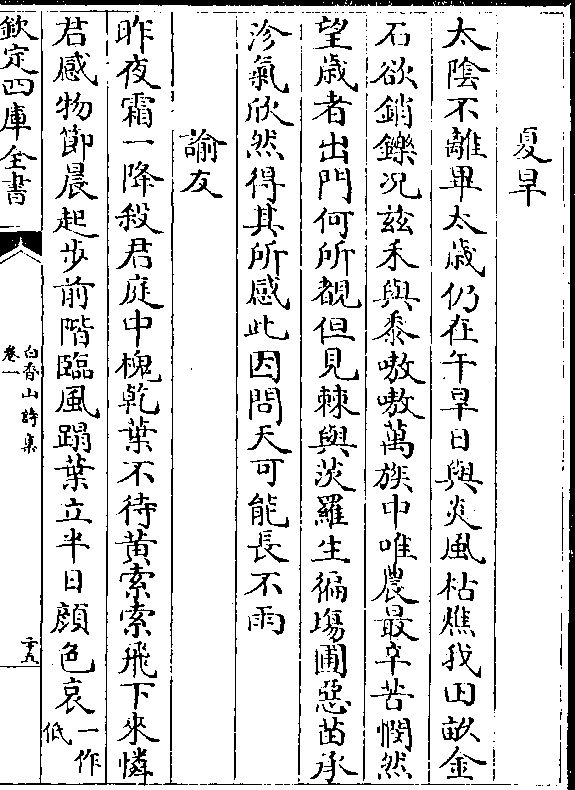 夏旱
太陰不離畢太歳仍在午旱日與炎風枯燋我田畝金
石欲銷鑠况兹禾與黍嗷嗷萬族中唯農最辛苦憫然
望歳者出門何所覩但見棘與茨羅生徧塲圃惡苗承
沴氣欣然得其所感此因問天可能長不雨
諭友
昨夜霜一降殺君庭中槐乾葉不待黄索索飛下來憐
君感物節晨起步前階臨風蹋葉立半日顔色哀一作低
欽定四庫全書
白香山詩集
卷一
二十五